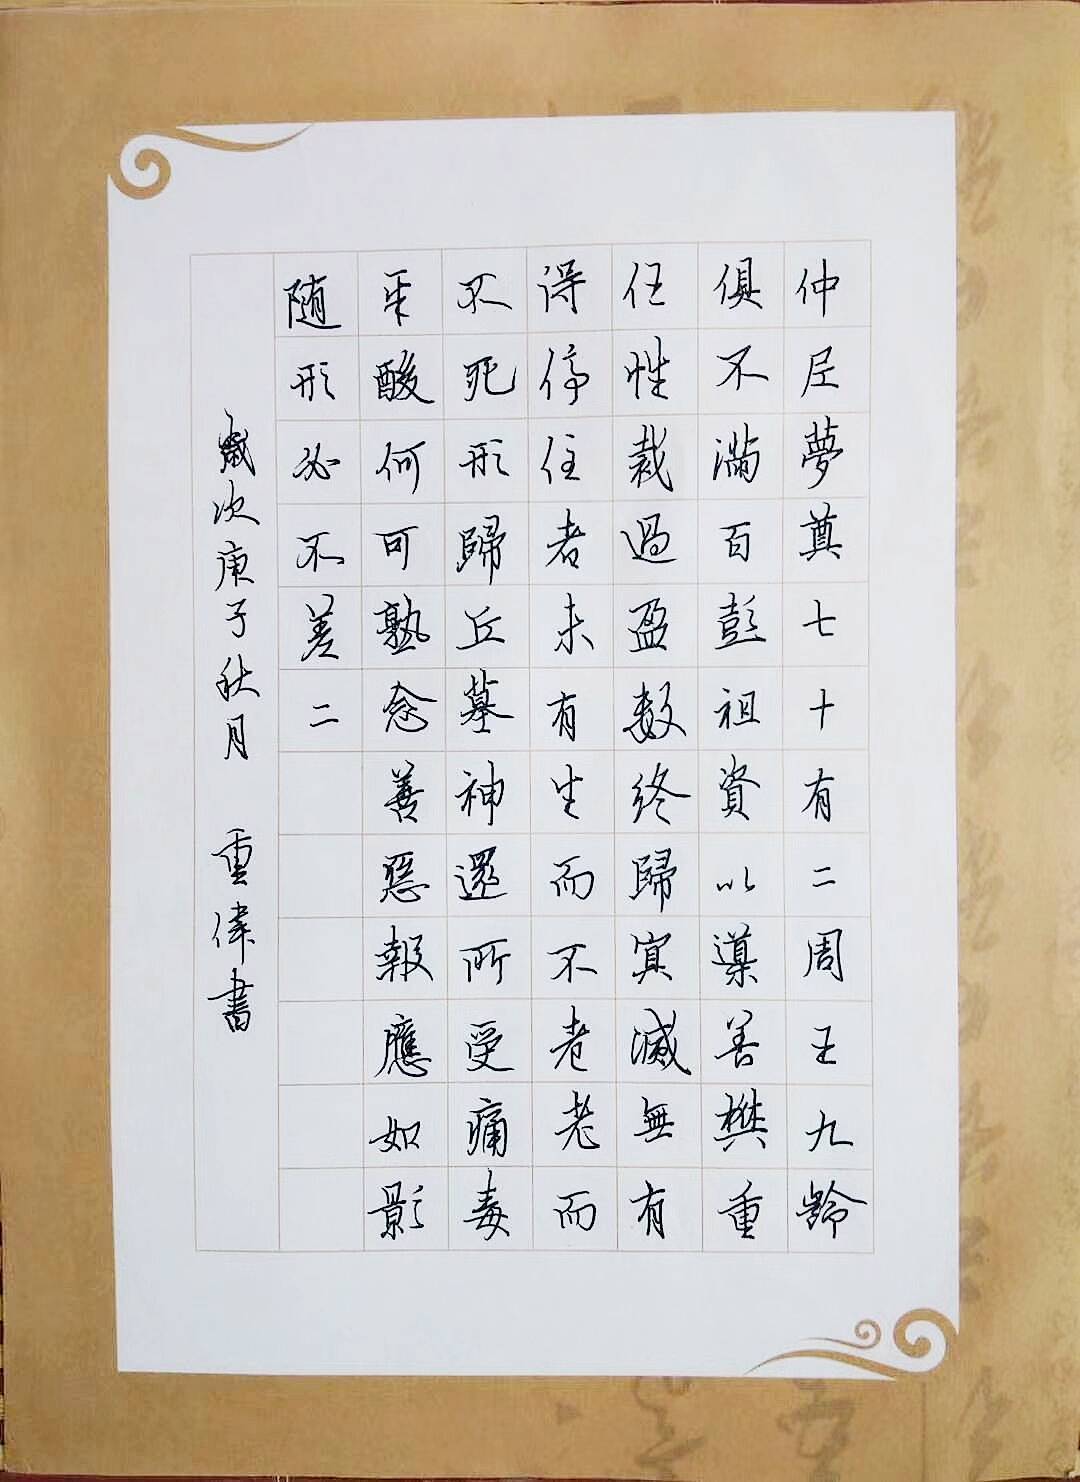 仲尼夢奠七十有二周王九齡
俱不滿百彭祖資以導善樊重
任性裁過盈數終歸冥滅無有
得停住者未有生而不老老而
不死形歸丘墓神還所受痛毒
辛酸何可熟念善惡報應如影
随形必不差二
歲次庚子秋月 重偉書